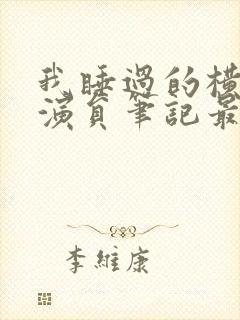 我睡過的橫
演員筆記最
李維康